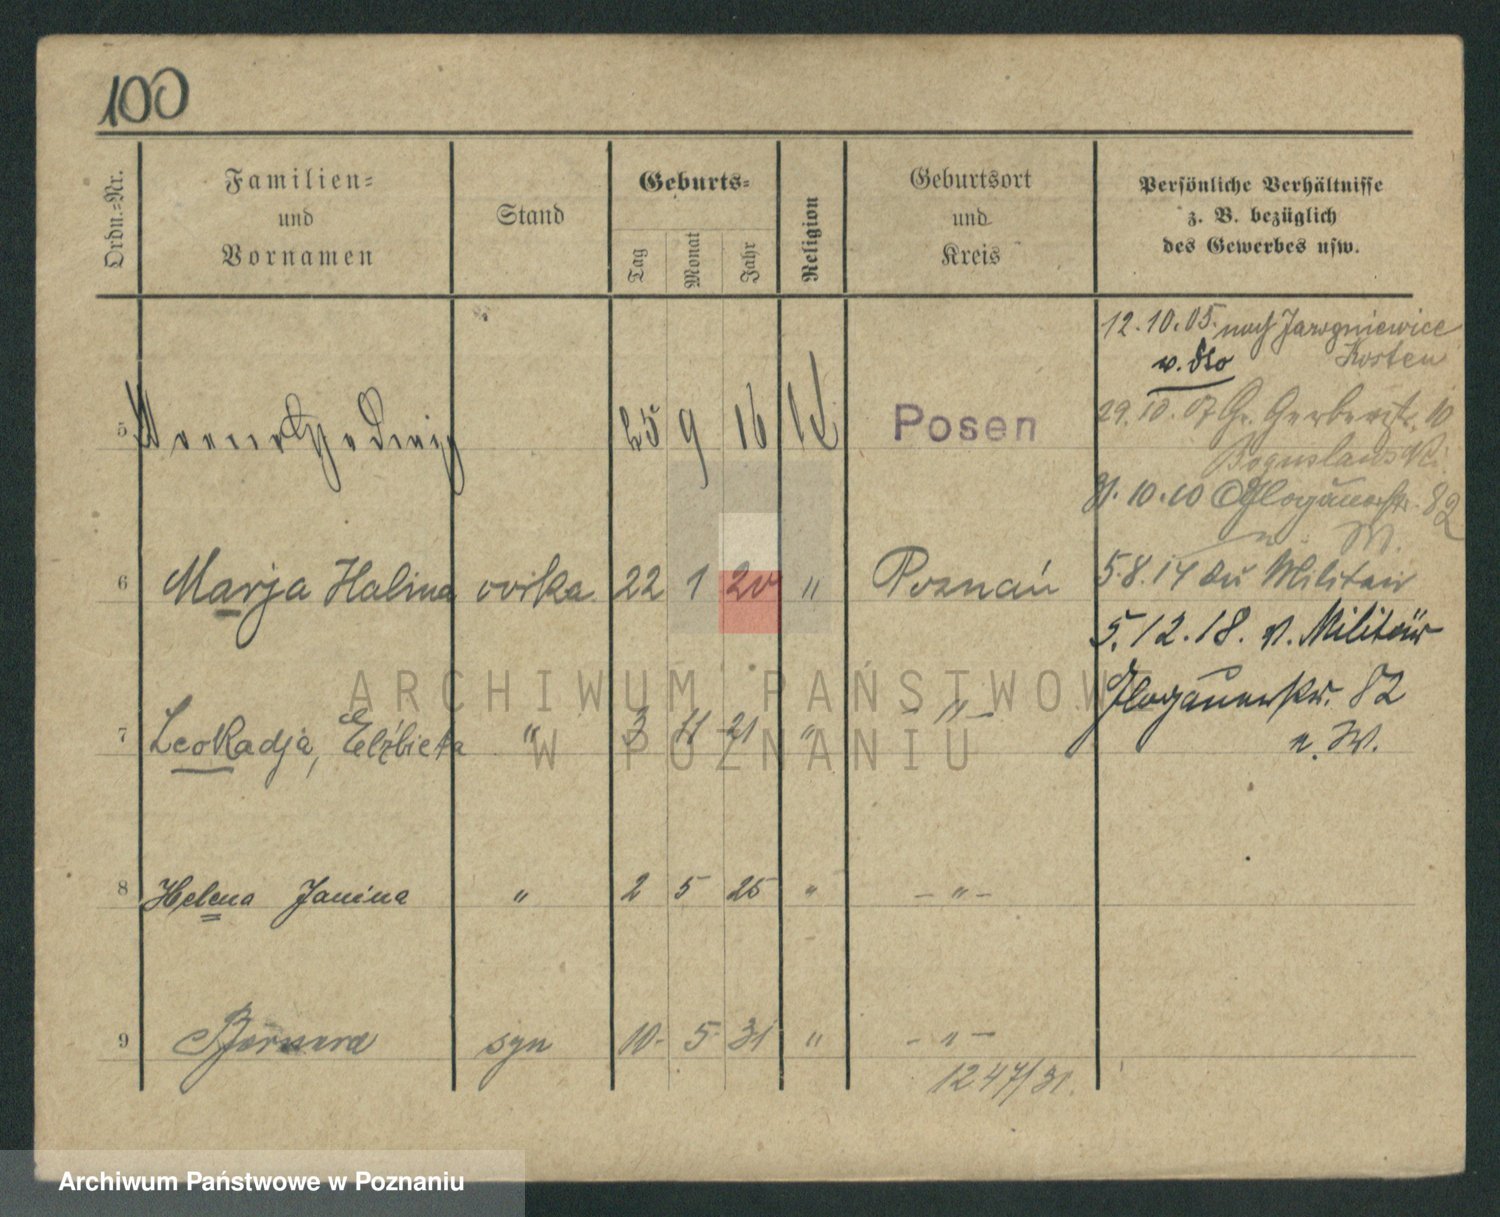 100
Ordn.-Nr.
Familien-
und
Vornamen
Stand
Geburts-
Tag
Monat
Jahr
Religion
Geburtsort
und
Kreis
Persönliche Verhältnisse
z. B. bezüglich
des Gewerbes usw.
12.10.05. nach Jarogniewice
Kosten
v. dto
29.10.07 Gr. Gerberstr. 10
Boguslawski
31.10.10 Glogauerstr. 82
n. W.
5.8.14 zu Militär
5.12.18. v. Militär
Glogauerstr. 82
n. W.
5 Hedwig 25 9 16 Posen
6 Marja Halina córka 22 1 20 " Poznań
7 Leokadja, Elżbieta " 3 11 21 " - " -
8 Helena Janina " 2 5 25 " - " -
9 Bernard syn 10 5 31 " - " -
1247/31.
ARCHIWUM PAŃSTWOWE
W POZNANIU
Archiwum Państwowe w Poznaniu